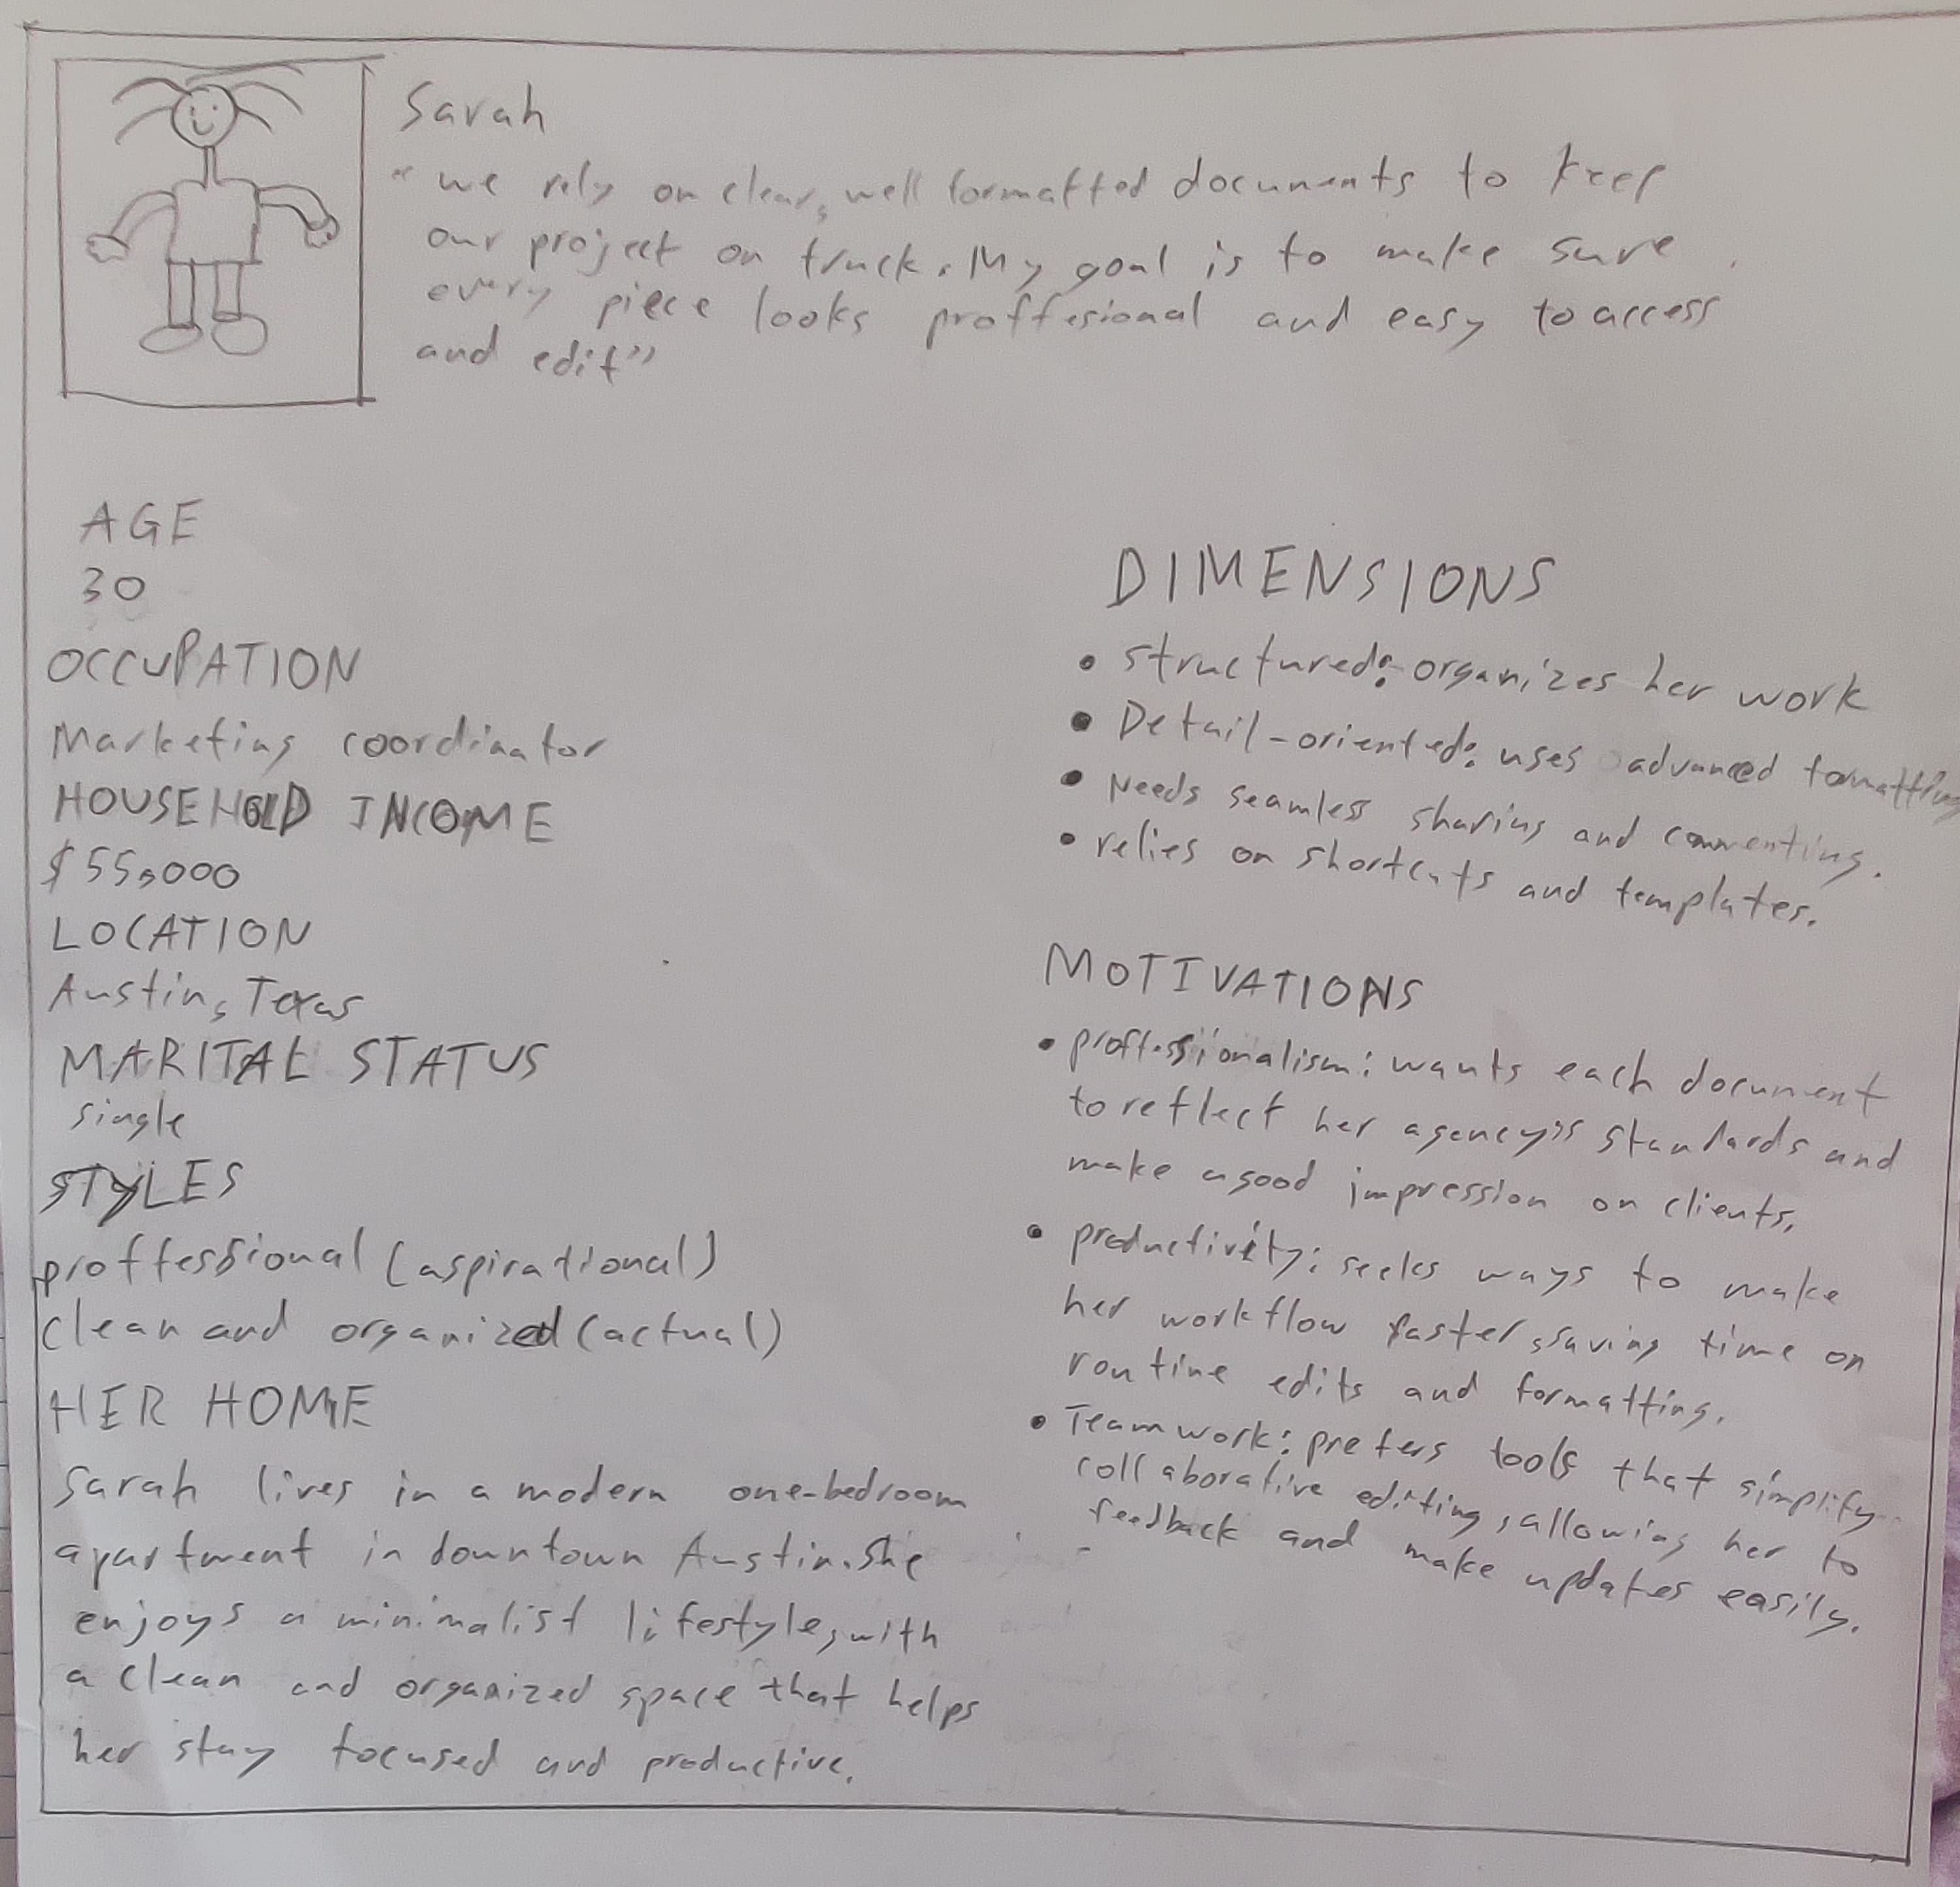 Sarah
"we rely on clear, well formatted documents to keep
our project on track. My goal is to make sure
every piece looks proffesional and easy to access
and edit"
AGE
30
OCCUPATION
Marketing coordinator
HOUSEHOLD INCOME
$55,000
LOCATION
Austin, Texas
MARITAL STATUS
single
STYLES
proffessional (aspirational)
clean and organized (actual)
HER HOME
Sarah lives in a modern one-bedroom
apartment in downtown Austin. She
enjoys a minimalist lifestyle, with
a clean and organized space that helps
her stay focused and productive.
DIMENSIONS
• structured: organizes her work
• Detail-oriented: uses advanced formatting
• Needs seamless sharing and commenting.
• relies on shortcuts and templates.
MOTIVATIONS
• proffessionalism: wants each document
to reflect her agency's standards and
make a good impression on clients.
• productivity: seeks ways to make
her workflow faster, saving time on
routine edits and formatting.
• Teamwork: prefers tools that simplify
collaborative editing, allowing her to
feedback and make updates easily.